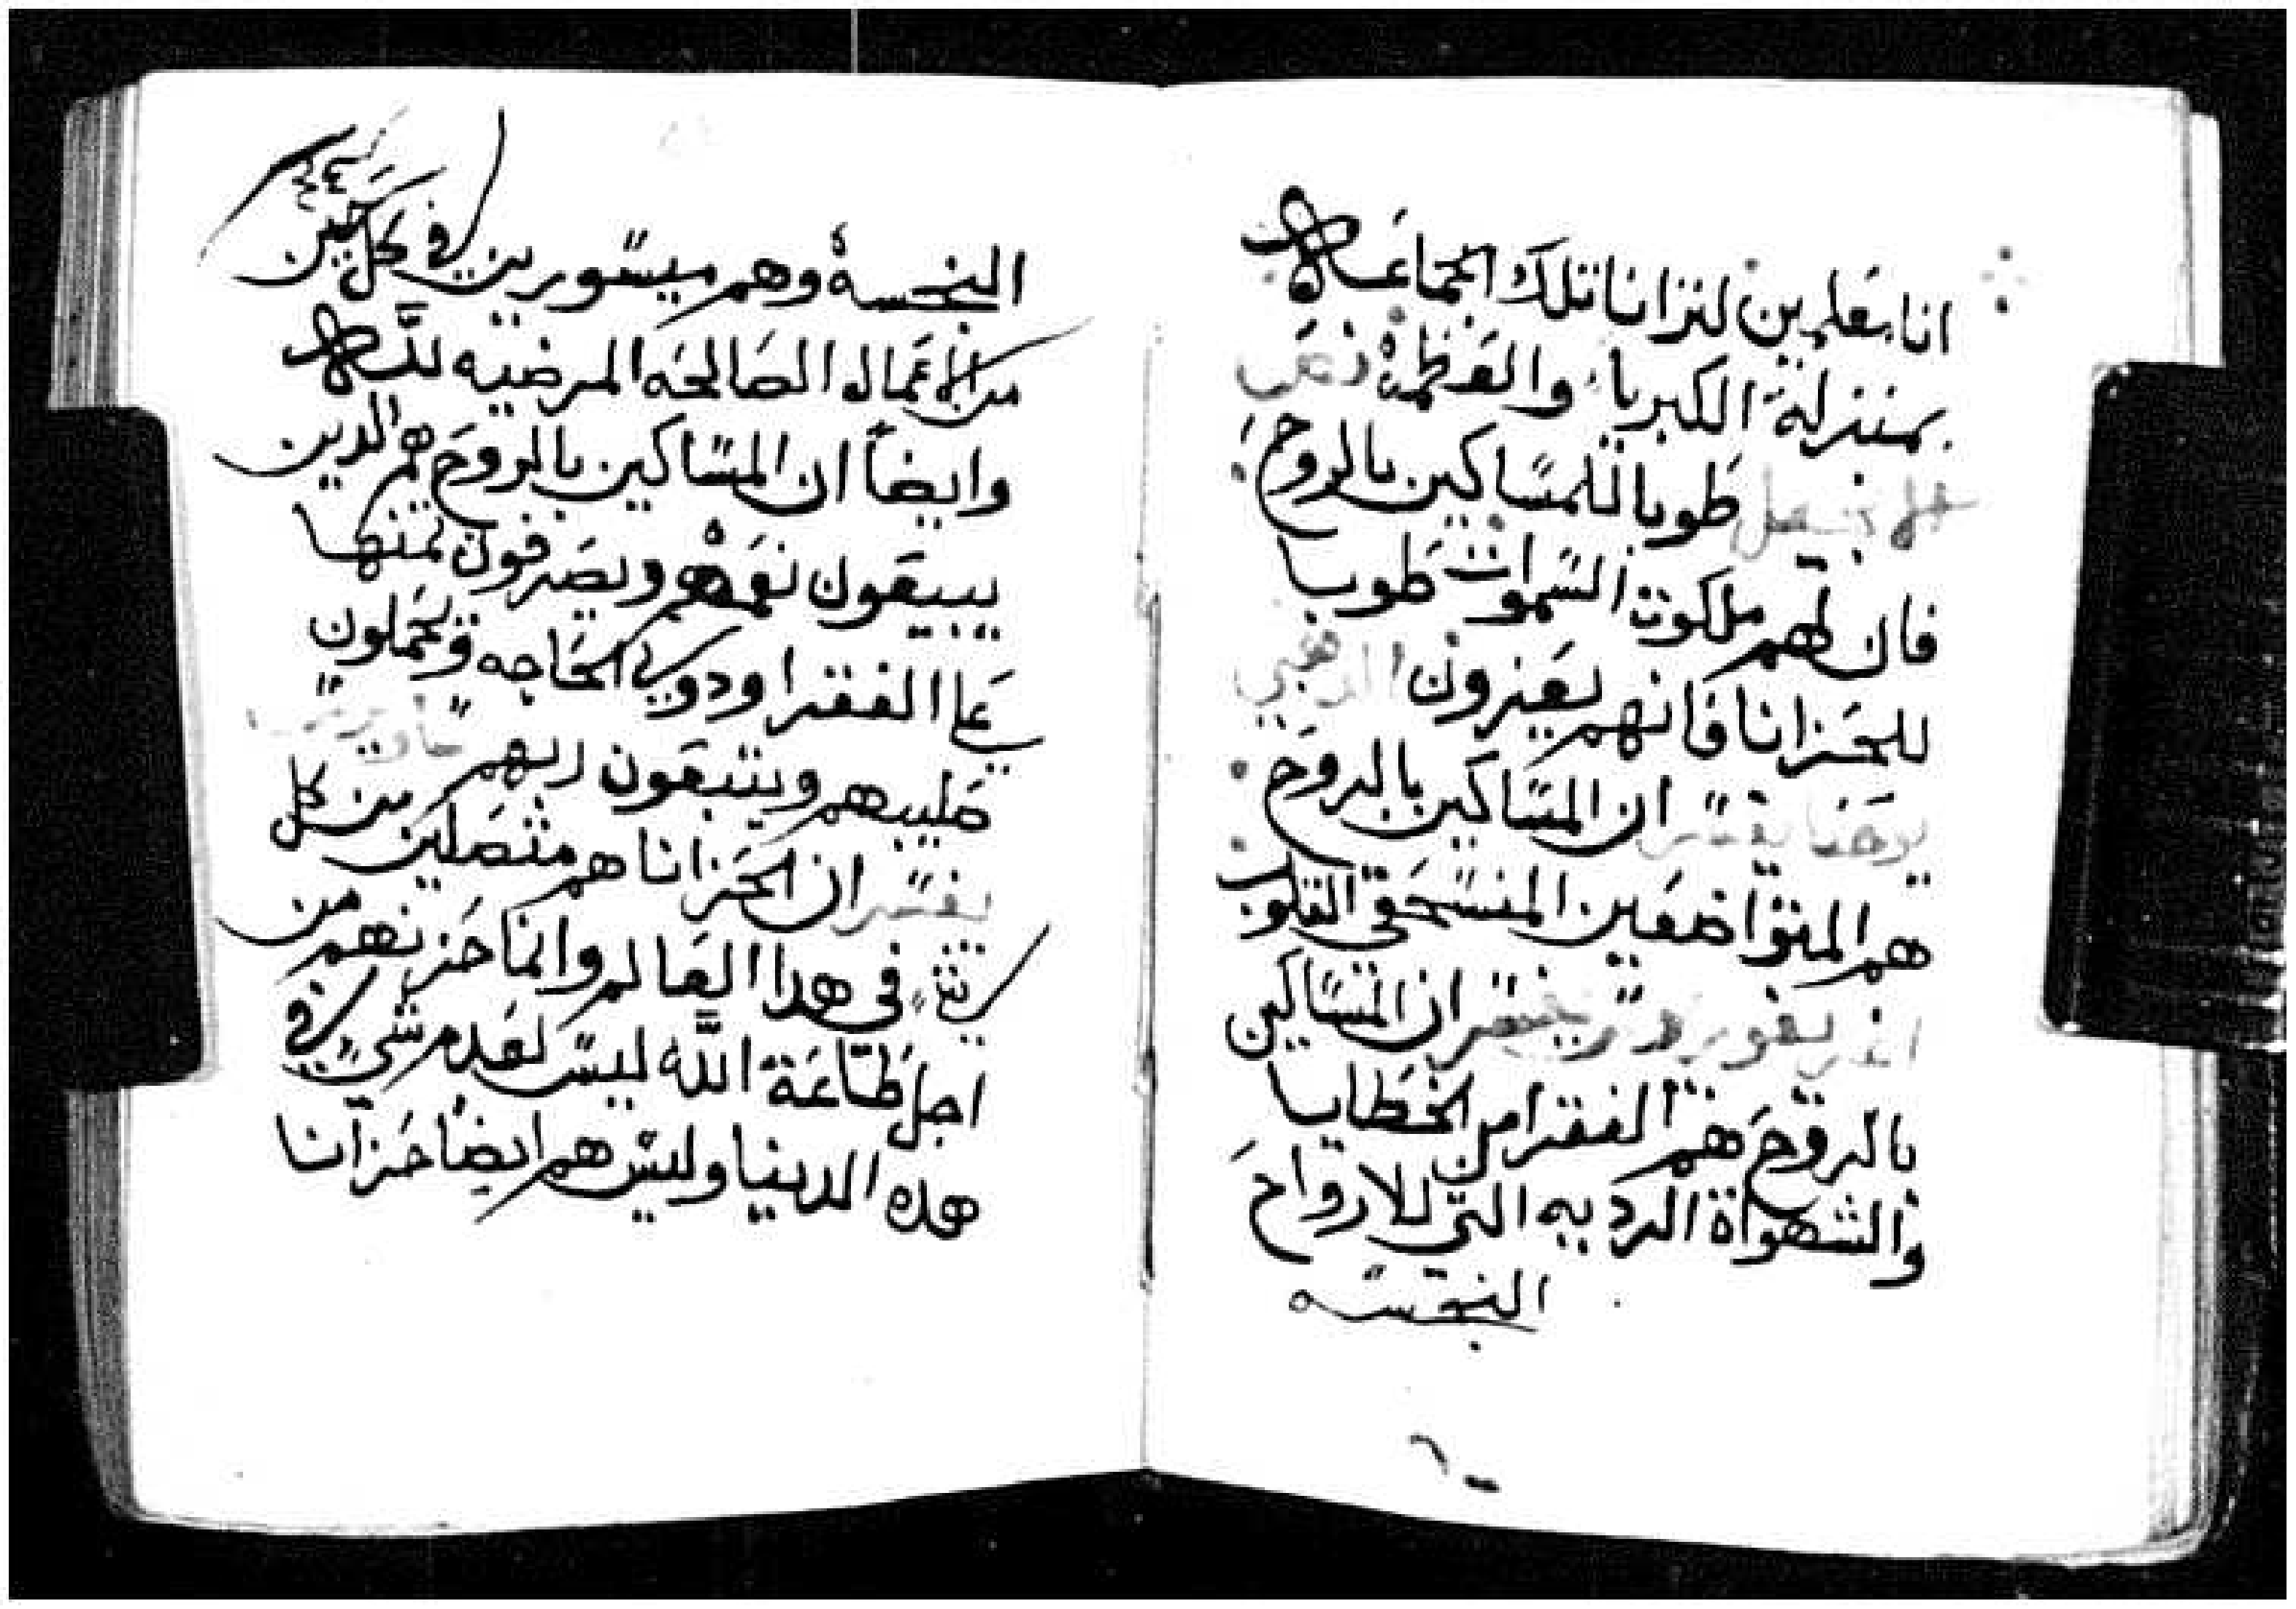 انا بعلمين لنزانا تلك الجماعه
بمنزلة الكبريا والعظمة نص
فصل طوبا للمساكين بالروح
فان لهم ملكوت السموات طوبا
للحزانا فانهم يعزون الدهبي
يفسر ان المساكين بالروح
هم المتواضعين المنسحقي القلوب
يفسر ان المساكين
بالروح هم الفقرا من الخطايا
والشهواة الرديه التي للارواح
النجسه
النجسة وهم ميسورين في كل حين
من الاعمال الصالحه المرضيه لله
وايضاً ان المساكين بالروح هم الدين
يبيعون نعمهم ويصرفون تمنها
علي الفقرا ودوي الحاجه ويحملون
صليبهم ويتبعون ربهم
يفسر ان الحزانا هم متصلين من كل
شي في هدا العالم وانما حزنهم من
اجل طاعة الله ليس لعدم شي في
هده الدنيا وليس هم ايضاً حزانا